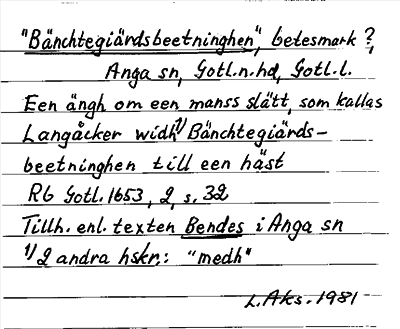 "Bänchtegiärdsbeetninghen", betesmark?,
Anga sn, Gotl.n.hd, Gotl.l.
Een ängh om een manss slätt, som kallas
Langåcker widh 1/ Bänchtegiärds-
beetninghen till een häst
RB Gotl. 1653, 2, s. 32
Tillh. enl. texten Bendes i Anga sn
1/ 2 andra hskr.: "medh"
L. Aks. 1981